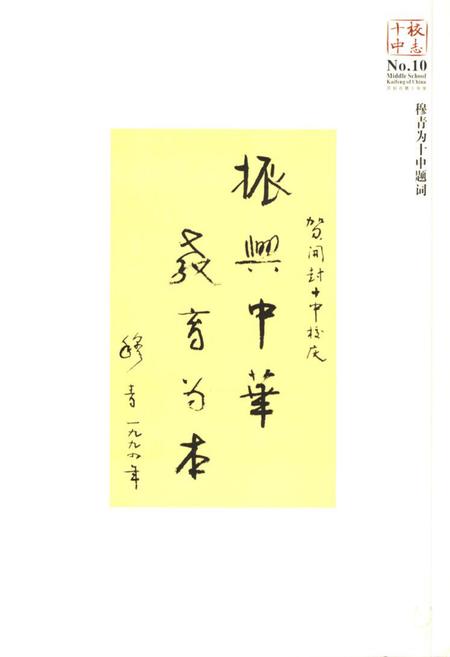 十中校志
No.10
Middle School
Kaifeng of China
穆青为十中题词
贺開封十中校庆
振興中華
教育为本
穆青一九九年